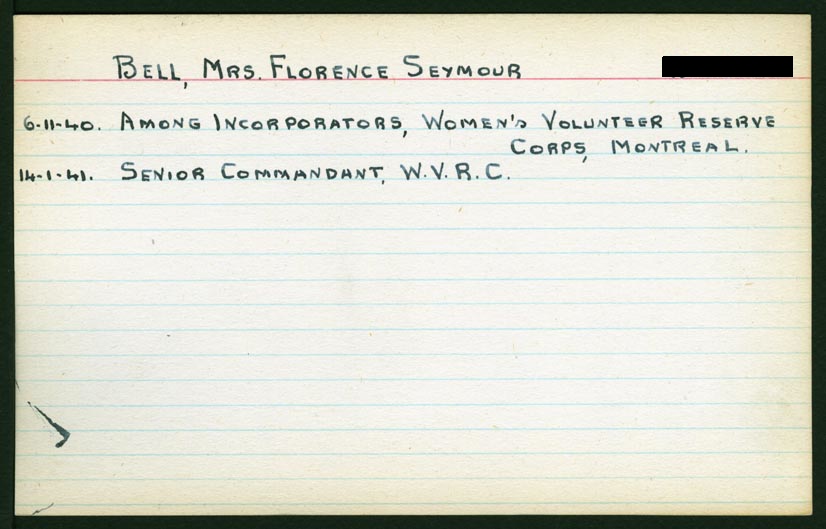 BELL, MRS. FLORENCE SEYMOUR
6-11-40. AMONG INCORPORATORS, WOMEN'S VOLUNTEER RESERVE
CORPS, MONTREAL.
14-1-41. SENIOR COMMANDANT, W.V.R.C.